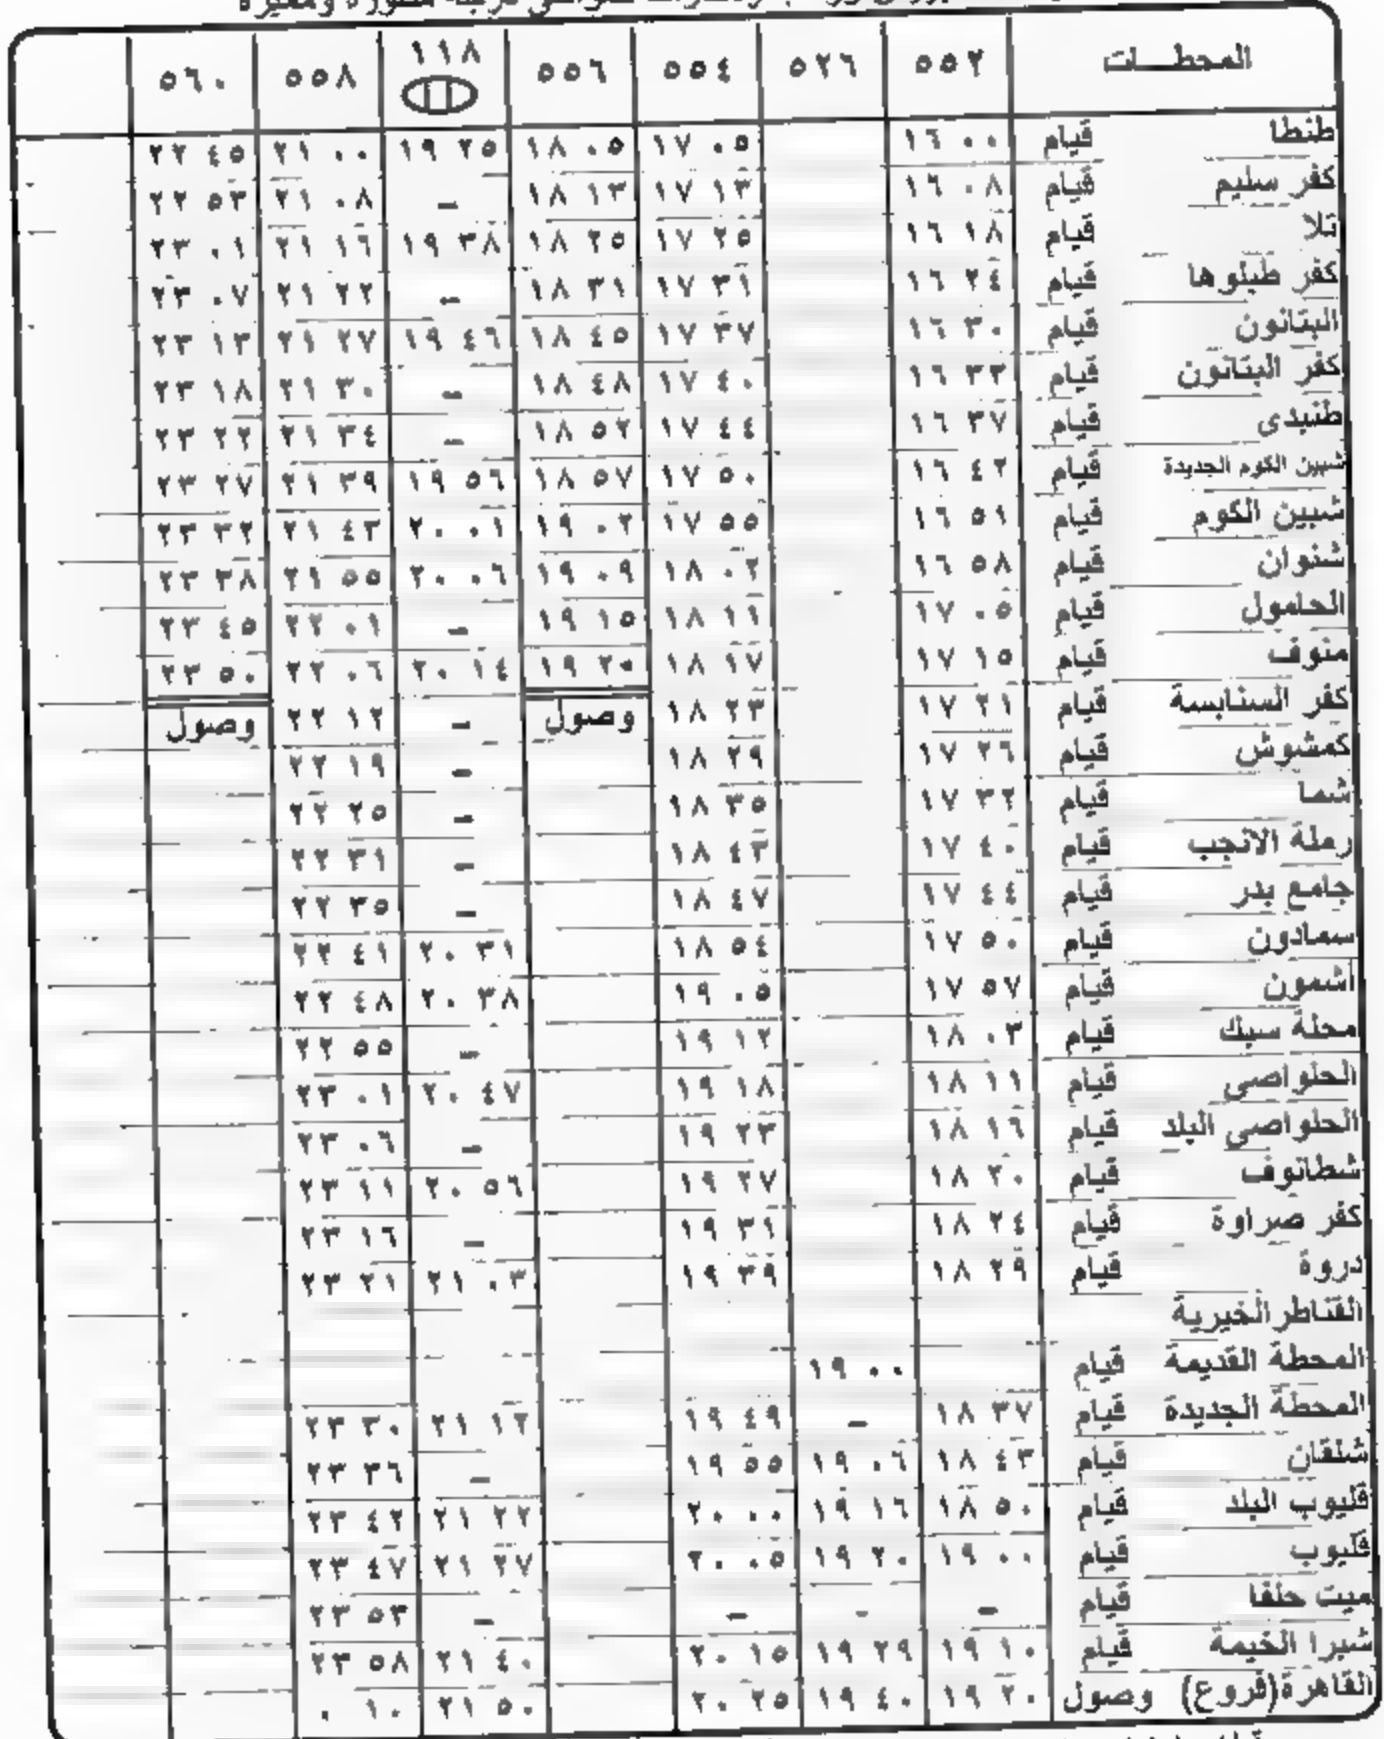 المحطــات ٥٥٢ ٥٢٦ ٥٥٤ ٥٥٦ ١١٨ ٥٥٨ ٥٦٠
طنطا قيام ١٦ ٠٠ ١٧ ٠٥ ١٨ ٠٥ ١٩ ٢٥ ٢١ ٠٠ ٢٢ ٤٥
كفر سليم قيام ١٦ ٠٨ ١٧ ١٣ ١٨ ١٣ – ٢١ ٠٨ ٢٢ ٥٣
تلا قيام ١٦ ١٨ ١٧ ٢٥ ١٨ ٢٥ ١٩ ٣٨ ٢١ ١٦ ٢٣ ٠١
كفر طبلوها قيام ١٦ ٢٤ ١٧ ٣١ ١٨ ٣١ – ٢١ ٢٢ ٢٣ ٠٧
البتانون قيام ١٦ ٣٠ ١٧ ٣٧ ١٨ ٤٥ ١٩ ٤٦ ٢١ ٢٧ ٢٣ ١٣
كفر البتانون قيام ١٦ ٣٣ ١٧ ٤٠ ١٨ ٤٨ – ٢١ ٣٠ ٢٣ ١٨
طنبدى قيام ١٦ ٣٧ ١٧ ٤٤ ١٨ ٥٢ – ٢١ ٣٤ ٢٣ ٢٢
شبين الكوم الجديدة قيام ١٦ ٤٢ ١٧ ٥٠ ١٨ ٥٧ ١٩ ٥٦ ٢١ ٣٩ ٢٣ ٢٧
شبين الكوم قيام ١٦ ٥١ ١٧ ٥٥ ١٩ ٠٢ ٢٠ ٠١ ٢١ ٤٣ ٢٣ ٣٢
شنوان قيام ١٦ ٥٨ ١٨ ٠٢ ١٩ ٠٩ ٢٠ ٠٦ ٢١ ٥٥ ٢٣ ٣٨
الحامول قيام ١٧ ٠٥ ١٨ ١١ ١٩ ١٥ – ٢٢ ٠١ ٢٣ ٤٥
منوف قيام ١٧ ١٥ ١٨ ١٧ ١٩ ٢٠ ٢٠ ١٤ ٢٢ ٠٦ ٢٣ ٥٠
كفر السنابسة قيام ١٧ ٢١ ١٨ ٢٣ وصول – ٢٢ ١٢ وصول
كمشوش قيام ١٧ ٢٦ ١٨ ٢٩ – ٢٢ ١٩
شما قيام ١٧ ٣٢ ١٨ ٣٥ – ٢٢ ٢٥
رملة الانجب قيام ١٧ ٤٠ ١٨ ٤٣ – ٢٢ ٣١
جامع بدر قيام ١٧ ٤٤ ١٨ ٤٧ – ٢٢ ٣٥
سمادون قيام ١٧ ٥٠ ١٨ ٥٤ ٢٠ ٣١ ٢٢ ٤١
اشمون قيام ١٧ ٥٧ ١٩ ٠٥ ٢٠ ٣٨ ٢٢ ٤٨
محلة سبك قيام ١٨ ٠٣ ١٩ ١٢ – ٢٢ ٥٥
الحلواصى قيام ١٨ ١١ ١٩ ١٨ ٢٠ ٤٧ ٢٣ ٠١
الحلواصى البلد قيام ١٨ ١٦ ١٩ ٢٣ – ٢٣ ٠٦
شطانوف قيام ١٨ ٢٠ ١٩ ٢٧ ٢٠ ٥٦ ٢٣ ١١
كفر صراوة قيام ١٨ ٢٤ ١٩ ٣١ – ٢٣ ١٦
دروة قيام ١٨ ٢٩ ١٩ ٣٩ ٢١ ٠٣ ٢٣ ٢١
القناطر الخيرية
المحطة القديمة قيام ١٩ ٠٠
المحطة الجديدة قيام ١٨ ٣٧ – ١٩ ٤٩ ٢١ ١٢ ٢٣ ٣٠
شلقان قيام ١٨ ٤٣ ١٩ ٠٦ ١٩ ٥٥ – ٢٣ ٣٦
قليوب البلد قيام ١٨ ٥٠ ١٩ ١٦ ٢٠ ٠٠ ٢١ ٢٢ ٢٣ ٤٢
قليوب قيام ١٩ ٠٠ ١٩ ٢٠ ٢٠ ٠٥ ٢١ ٢٧ ٢٣ ٤٧
ميت حلفا قيام – – – – ٢٣ ٥٣
شبرا الخيمة قيام ١٩ ١٠ ١٩ ٢٩ ٢٠ ١٥ ٢١ ٤٠ ٢٣ ٥٨
القاهرة(فروع) وصول ١٩ ٢٠ ١٩ ٤٠ ٢٠ ٢٥ ٢١ ٥٠ ٠ ١٠